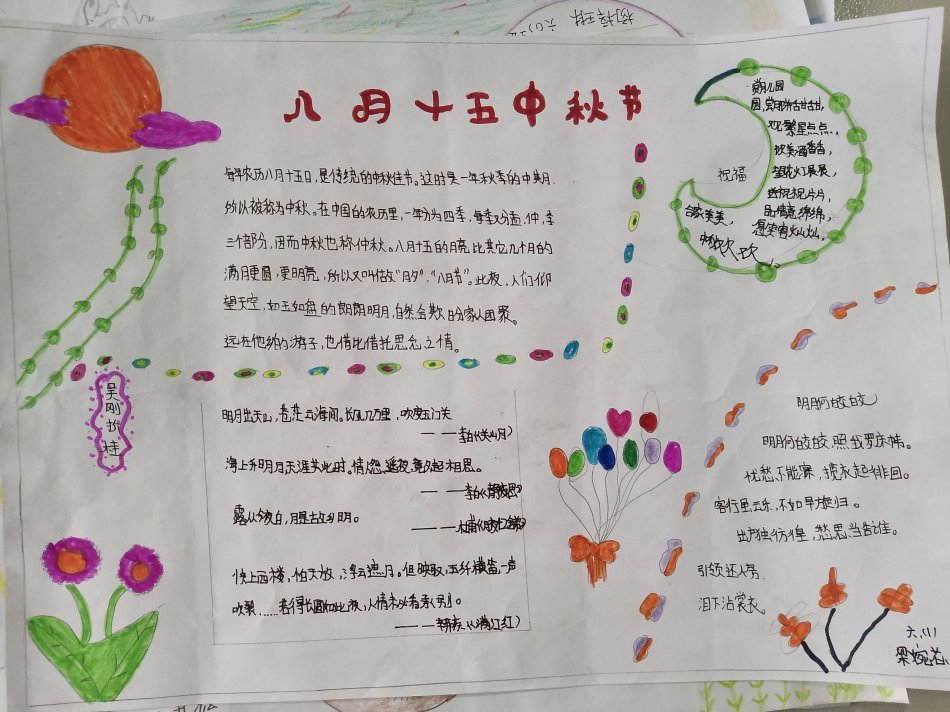 杨梓琳
六(1)
八月十五中秋节
每年农历八月十五日，是传统的中秋佳节。这时是一年秋季的中期，
所以被称为中秋。在中国的农历里，一年分为四季，每季又分孟、仲、季
三个部分，因而中秋也称仲秋。八月十五的月亮比其它几个月的
满月更圆，更明亮，所以又叫做“月夕”，“八月节”。此夜，人们仰
望天空，如玉如盘的朗朗明月，自然会欺的家人团聚。
远在他乡的游子，也借此借托思念之情。
祝福
繁星点点，
饮美酒香香，
品情意绵绵，
合家美美，
吴刚
明月出天山，苍茫云海间。长风几万里，吹度玉门关
——李白《关山月》
海上升明月天涯共此时，情人怨遥夜，竟夕起相思。
露从今夜白，月是故乡明。
快上西楼，怕天放，浮云遮月。但唤取，玉纤横笛，一声
吹裂……若得长圆如此夜，人情未必看承别。
——辛弃疾《满江红》
明月何皎皎
明月何皎皎，照我罗床帏。
忧愁不能寐，揽衣起徘徊。
客行虽云乐，不如早旋归。
出户独彷徨，愁思当告谁。
引领还入房，
泪下沾裳衣。
六(1)